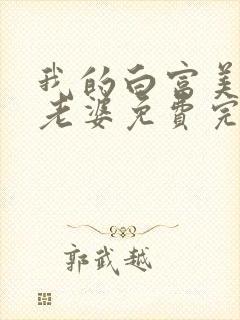 我的白富美
老婆免费完
郭武越